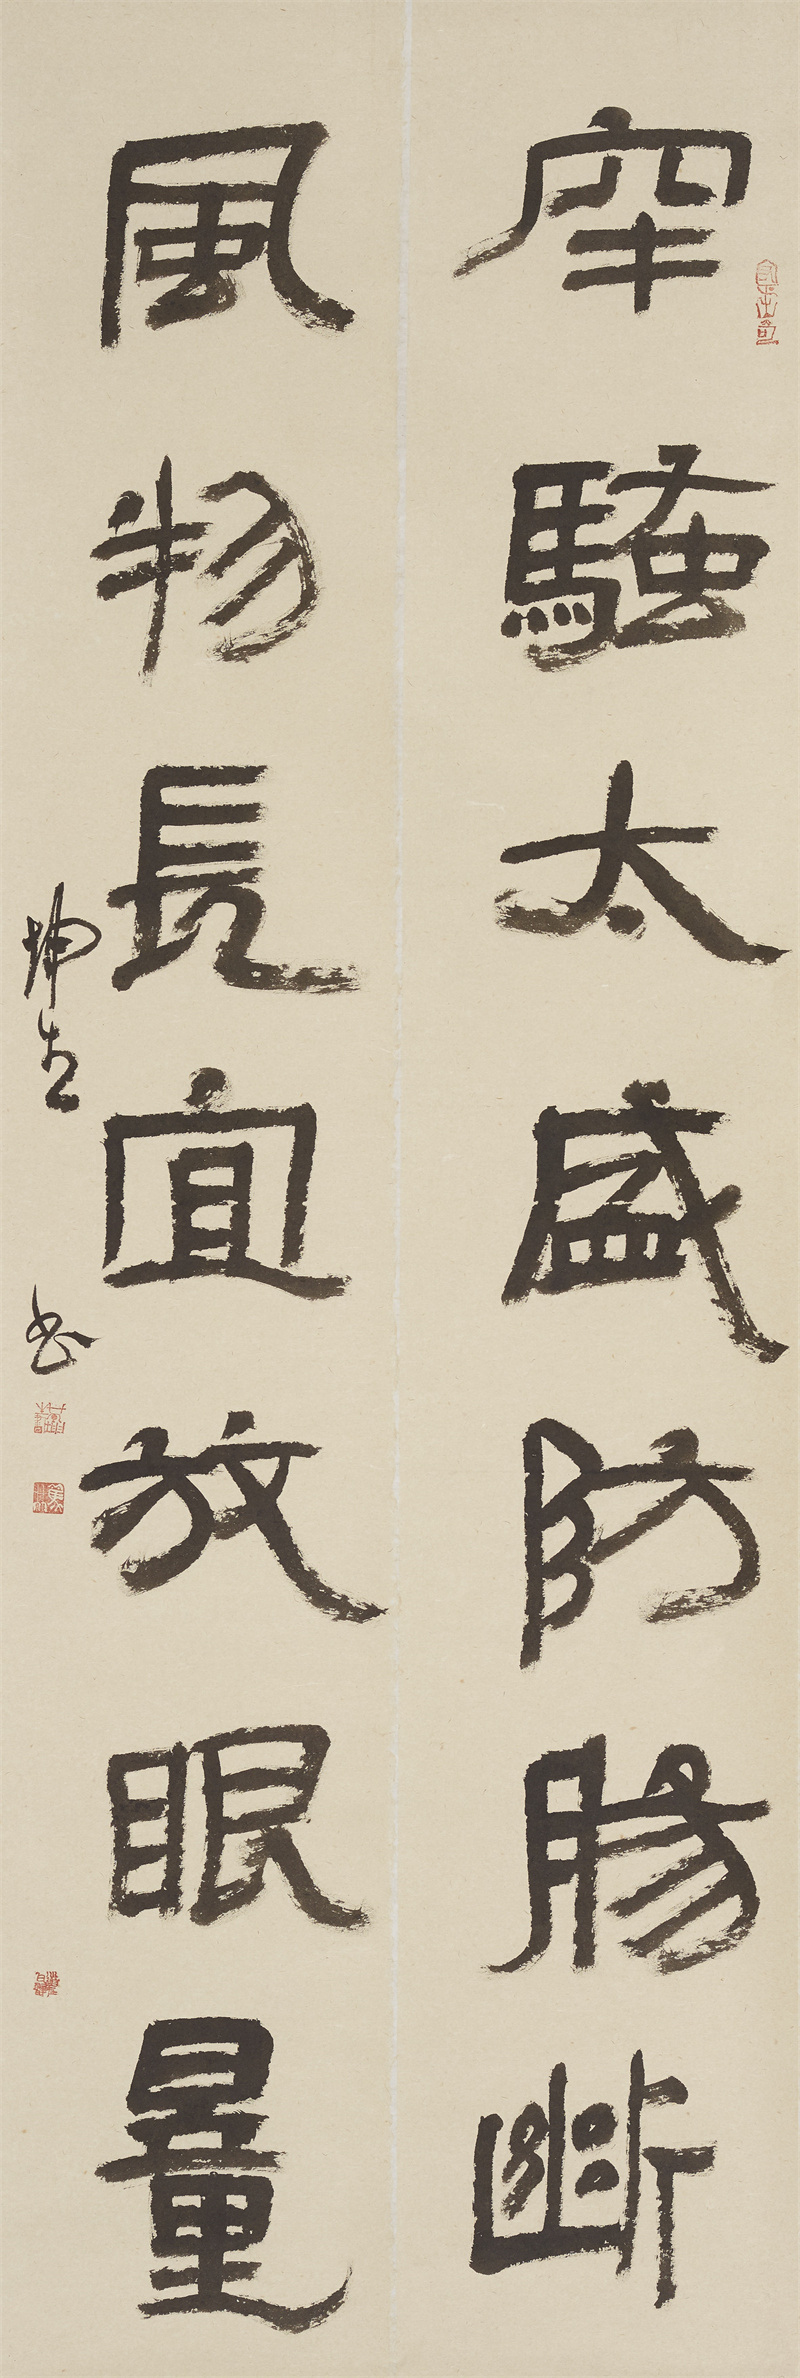 牢騷太盛防腸斷
風物長宜放眼量
坤
書